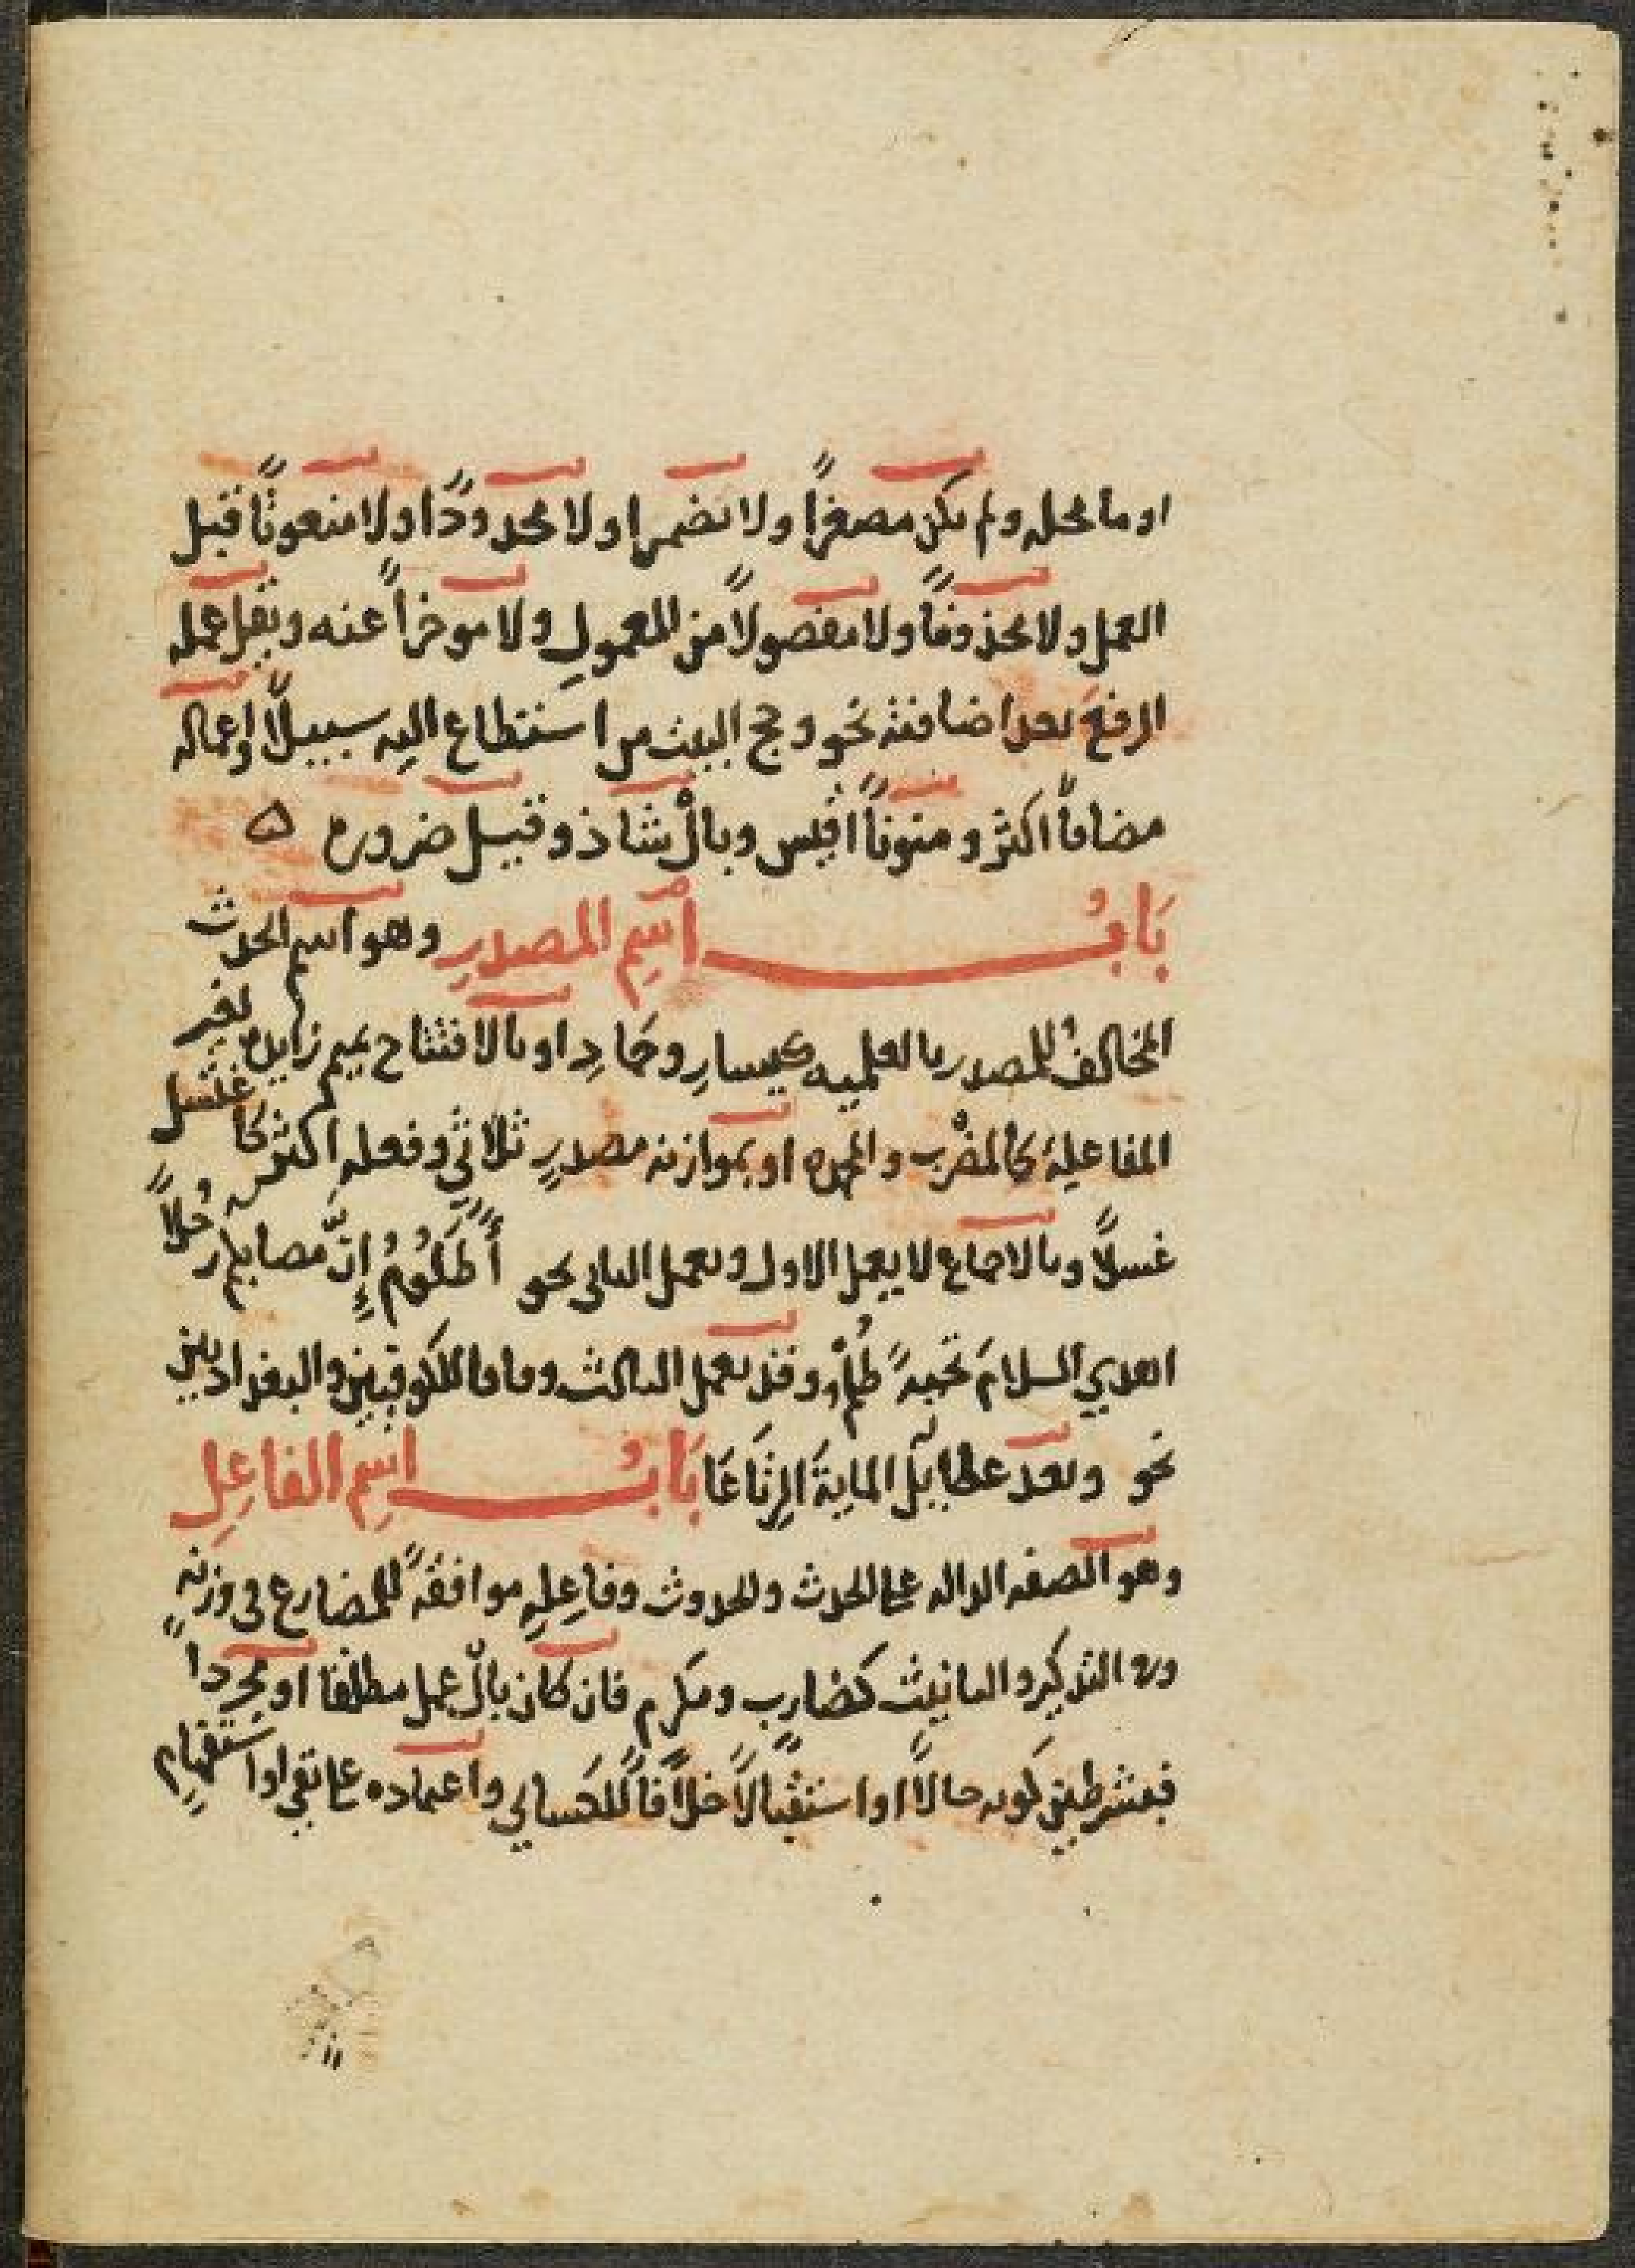 او ما محله ولم يكن مصغراً ولا مضمرا ولا محدودًا ولا منعوتًا قبل
العمل ولا محذوفًا ولا مفصولاً من المعمولِ ولا موخراً عنه ويقل عمله
الرفعَ بعد اضافته نحو وحج البيت من استطاع اليه سبيلاً واعماله
مضافاً اكثر ومنوناً اقيس وبالْ شاذ وقيل ضرورة ه
بَابُ اسْمِ المصدرِ وهو اسم الحدث
المخالفُ للمصدر بالعلميه كيسارِ وحَمادِ او بالافتتاح بميم زايده لغير
المفاعلِة كالمضْرب والمحمده او بموازنه مصدرٍ ثلاثيٍ وفعله اكثر كاغتسل
غسلاً وبالاجماع لا يعمل الاول ويعمل الثاني نحو أَظَلُومُ إِنَّ مصابكم رجُلاً
اهدي السلامَ تحيهً ظُلْمُ وقد يعمل الثالث وفاقا للكوفيين والبغداديين
نحو وبعد عطايك المايةَ الرِتَاعَا بَابُ اسِم الفاعِلِ
وهو الصفه الداله على الحدث والحدوث وفاعِلِه موافقهً للمضارع في وزنهِ
وفي التذكير والتانيث كضاربٍ ومكرم فان كان بالْ عمل مطلقا او مجرداً
فبشرطين كونه حالاً او استقبالاً خلافاً للكسايي واعتماده على نفي او استفهامٍ